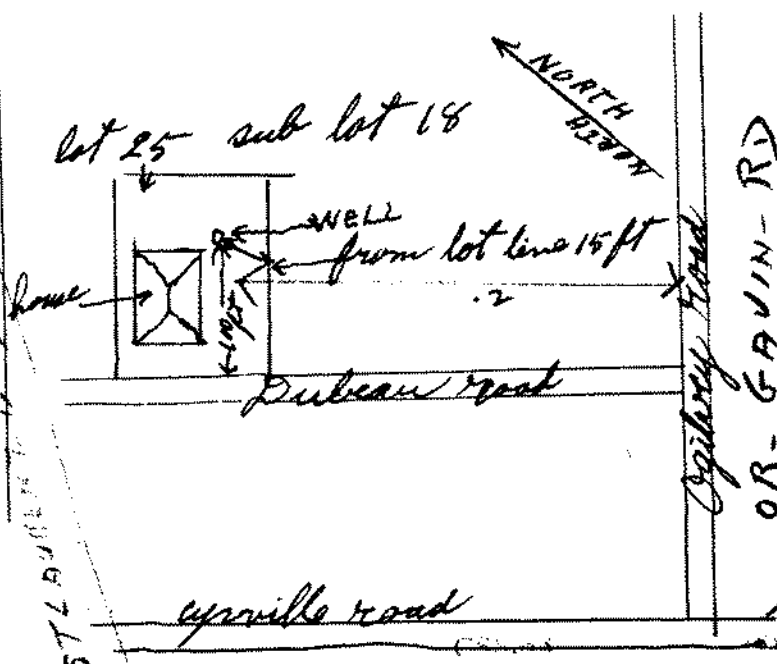 NORTH
NORTH
lot 25 sub lot 18
WELL
from lot line 15 ft
house
.2
Dubeau road
Ogilvey road
OR- GAVIN-RD
ST LAURENT
cyrville road